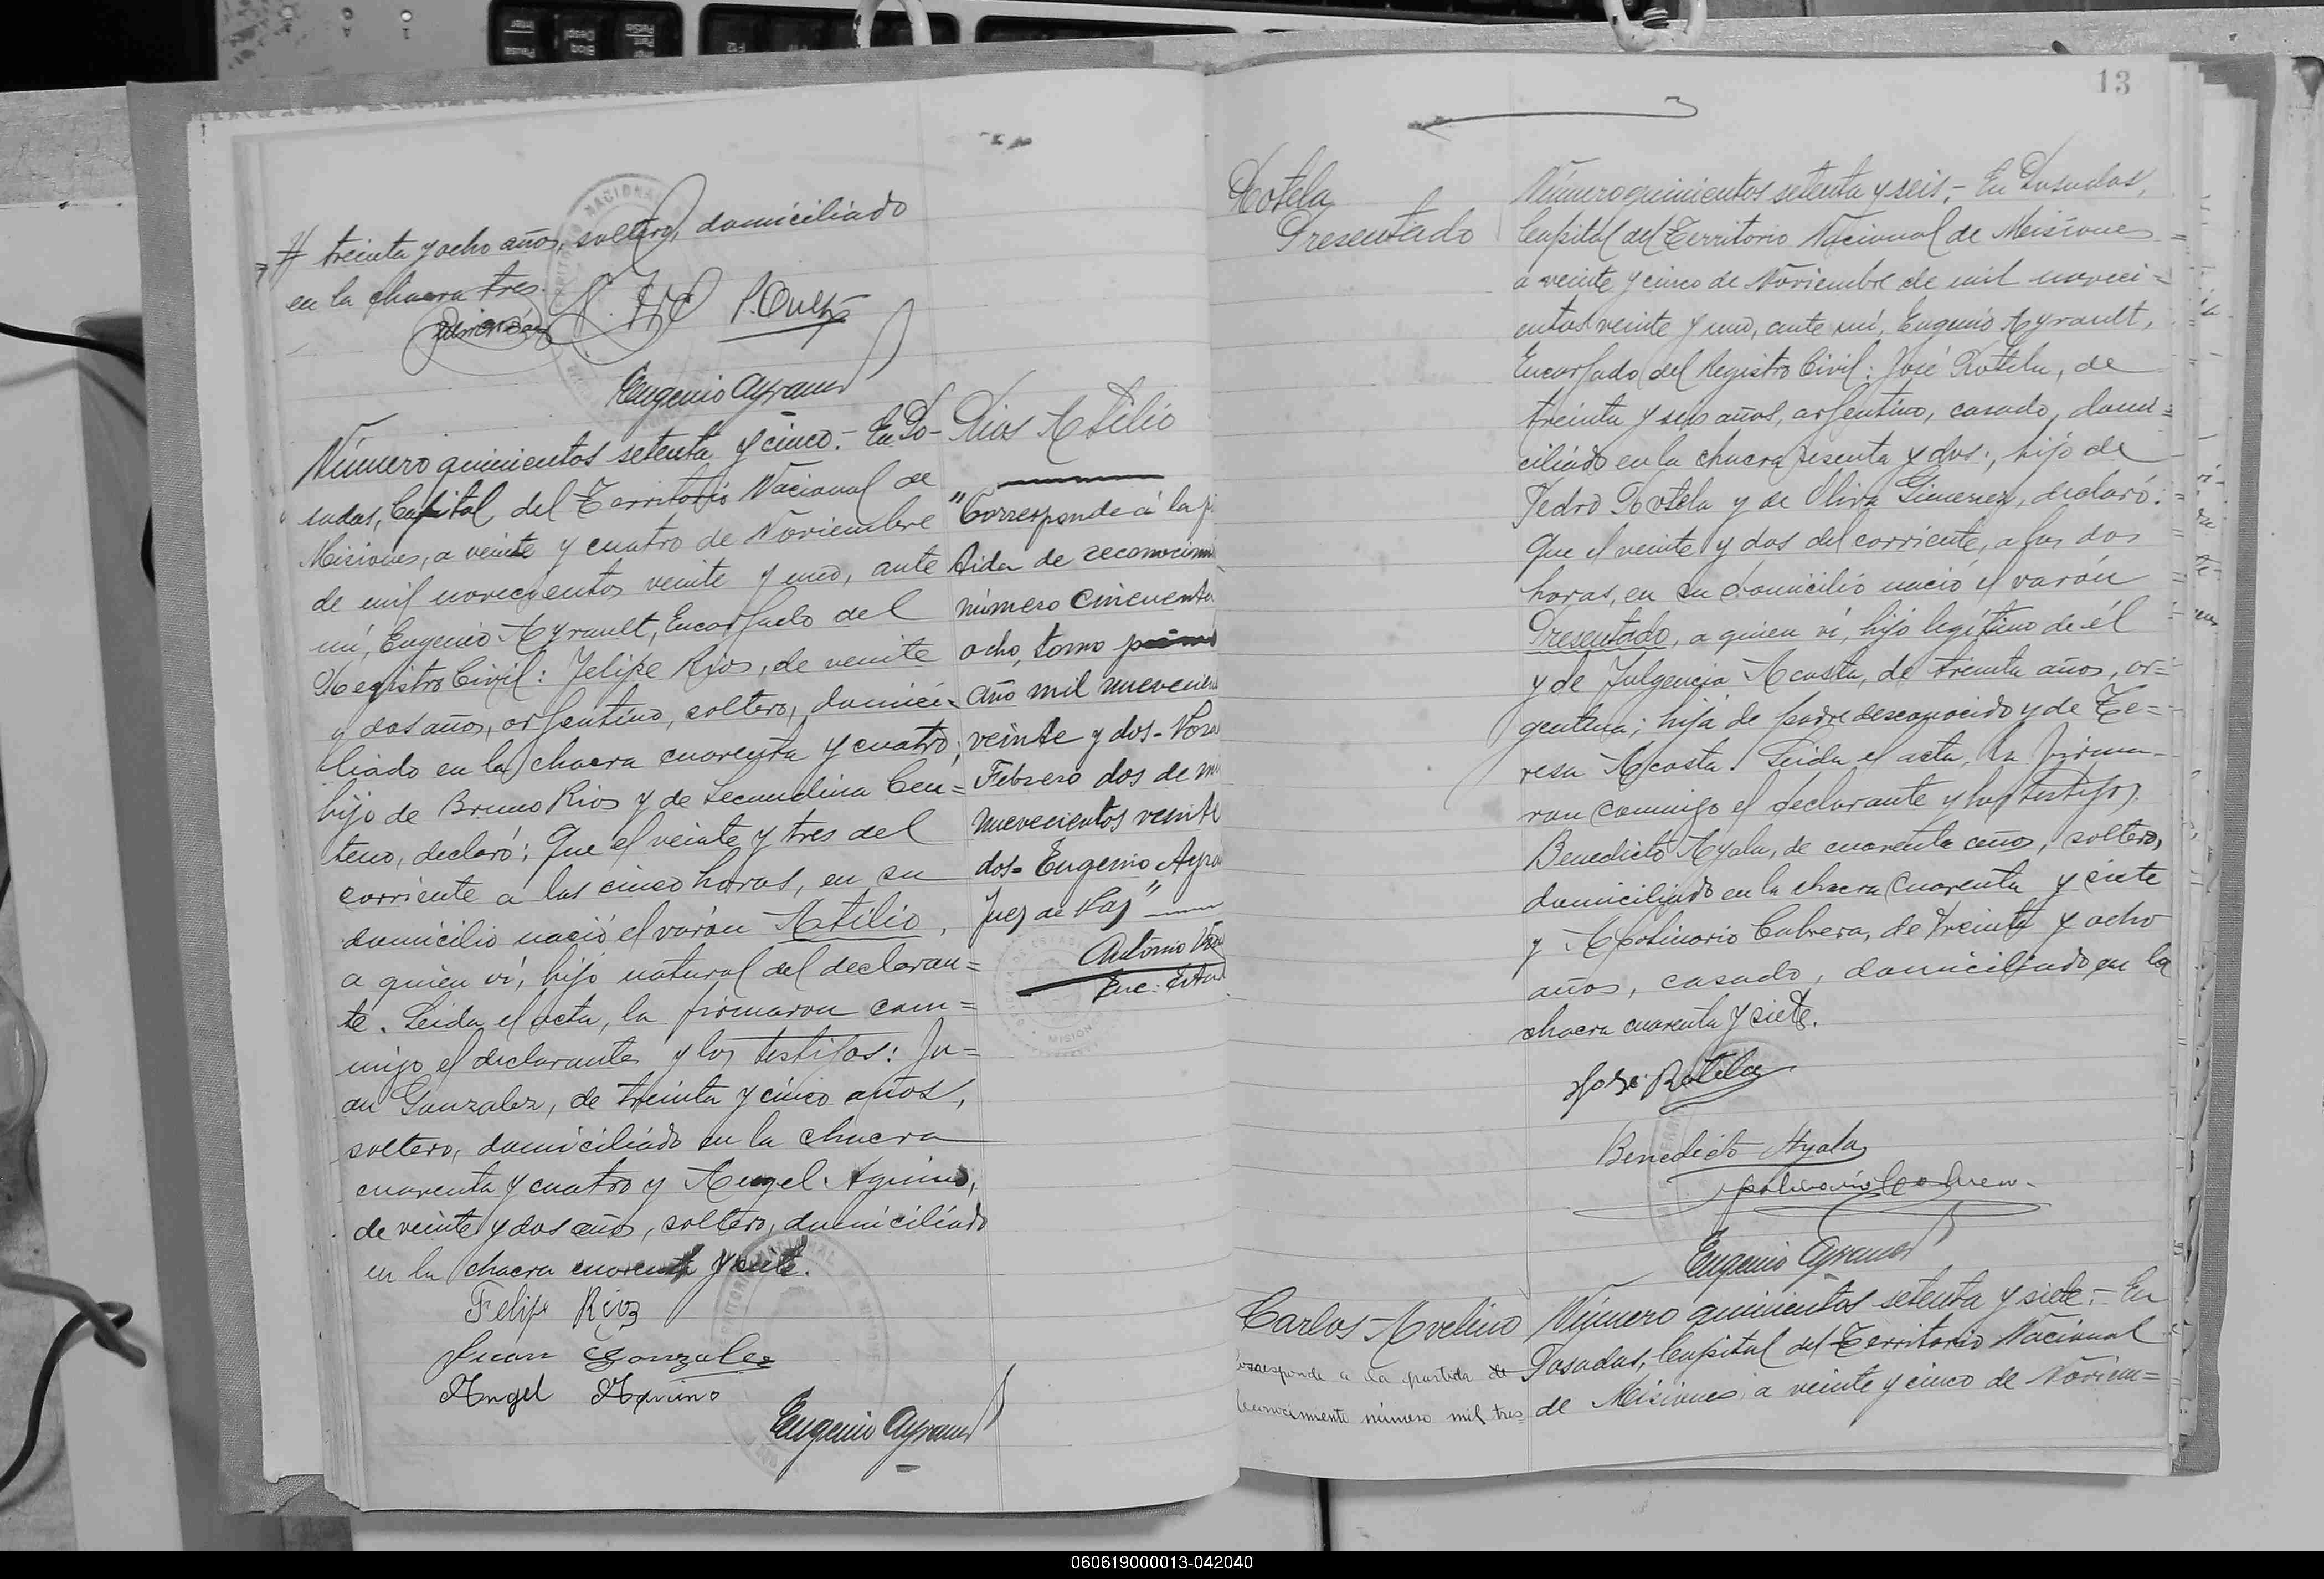 13
# treinta y ocho años, soltero, domiciliado
en la chacra tres.
Eugenio Ayrault
Número quinientos setenta y cinco.- En Po-
sadas, Capital del Territorio Nacional de
Misiones, a veinte y cuatro de Noviembre
de mil novecientos veinte y uno, ante
mí, Eugenio Ayrault, Encargado del
Registro Civil: Felipe Rios, de veinte
y dos años, argentino, soltero, domici-
liado en la chacra cuarenta y cuatro;
hijo de Bruno Rios y de Secundina Cen=
teno, declaró: Que el veinte y tres del
corriente a las cinco horas, en su
domicilio nació el varón Atilio,
a quien ví, hijo natural del declaran=
te. Leida el acta, la firmaron con=
migo el declarante y los testigos: Ju=
an Gonzalez, de treinta y cinco años,
soltero, domiciliado en la chacra
cuarenta y cuatro y Angel Aquino,
de veinte y dos años, soltero, domiciliado
en la chacra cuarenta y siete.
Felipe Rios
Juan Gonzalez
Angel Aquino
Eugenio Ayrault
Rios Atilio
"Corresponde á la p
tida de reconocimi
número cincuenta
ocho, tomo primo
año mil novecien
veinte y dos - Posa
Febrero dos de mi
novecientos veinte
dos - Eugenio Ayra
Juez de Paz"
Antonio
Enc:
MISION
Rotela
Presentado
Número quinientos setenta y seis.- En Posadas,
Capital del Territorio Nacional de Misiones
a veinte y cinco de Noviembre de mil noveci=
entos veinte y uno, ante mí, Eugenio Ayrault,
Encargado del Registro Civil: José Rotela, de
treinta y seis años, argentino, casado, domi=
ciliado en la chacra sesenta y dos; hijo de
Pedro Rotela y de Oliva Gimenez, declaró:
Que el veinte y dos del corriente, a las dos
horas, en su domicilio nació el varón
Presentado, a quien ví, hijo legítimo de él
y de Fulgencia Acosta, de treinta años, ar=
gentina; hija de padre desconocido y de Te=
resa Acosta. Leida el acta, la firma-
ron conmigo el declarante y los testigos:
Benedicto Ayala, de cuarenta años, soltero,
domiciliado en la chacra cuarenta y siete
y Apolinario Cabrera, de treinta y ocho
años, casado, domiciliado en la
chacra cuarenta y siete.
José Rotela
Benedicto Ayala
Apolinario Cabrera
Eugenio Ayrault
Carlos Avelino
Corresponde a la partida de
reconocimiento número mil tres
Número quinientos setenta y siete.- En
Posadas, Capital del Territorio Nacional
de Misiones, a veinte y cinco de Noviem=
060619000013-042040